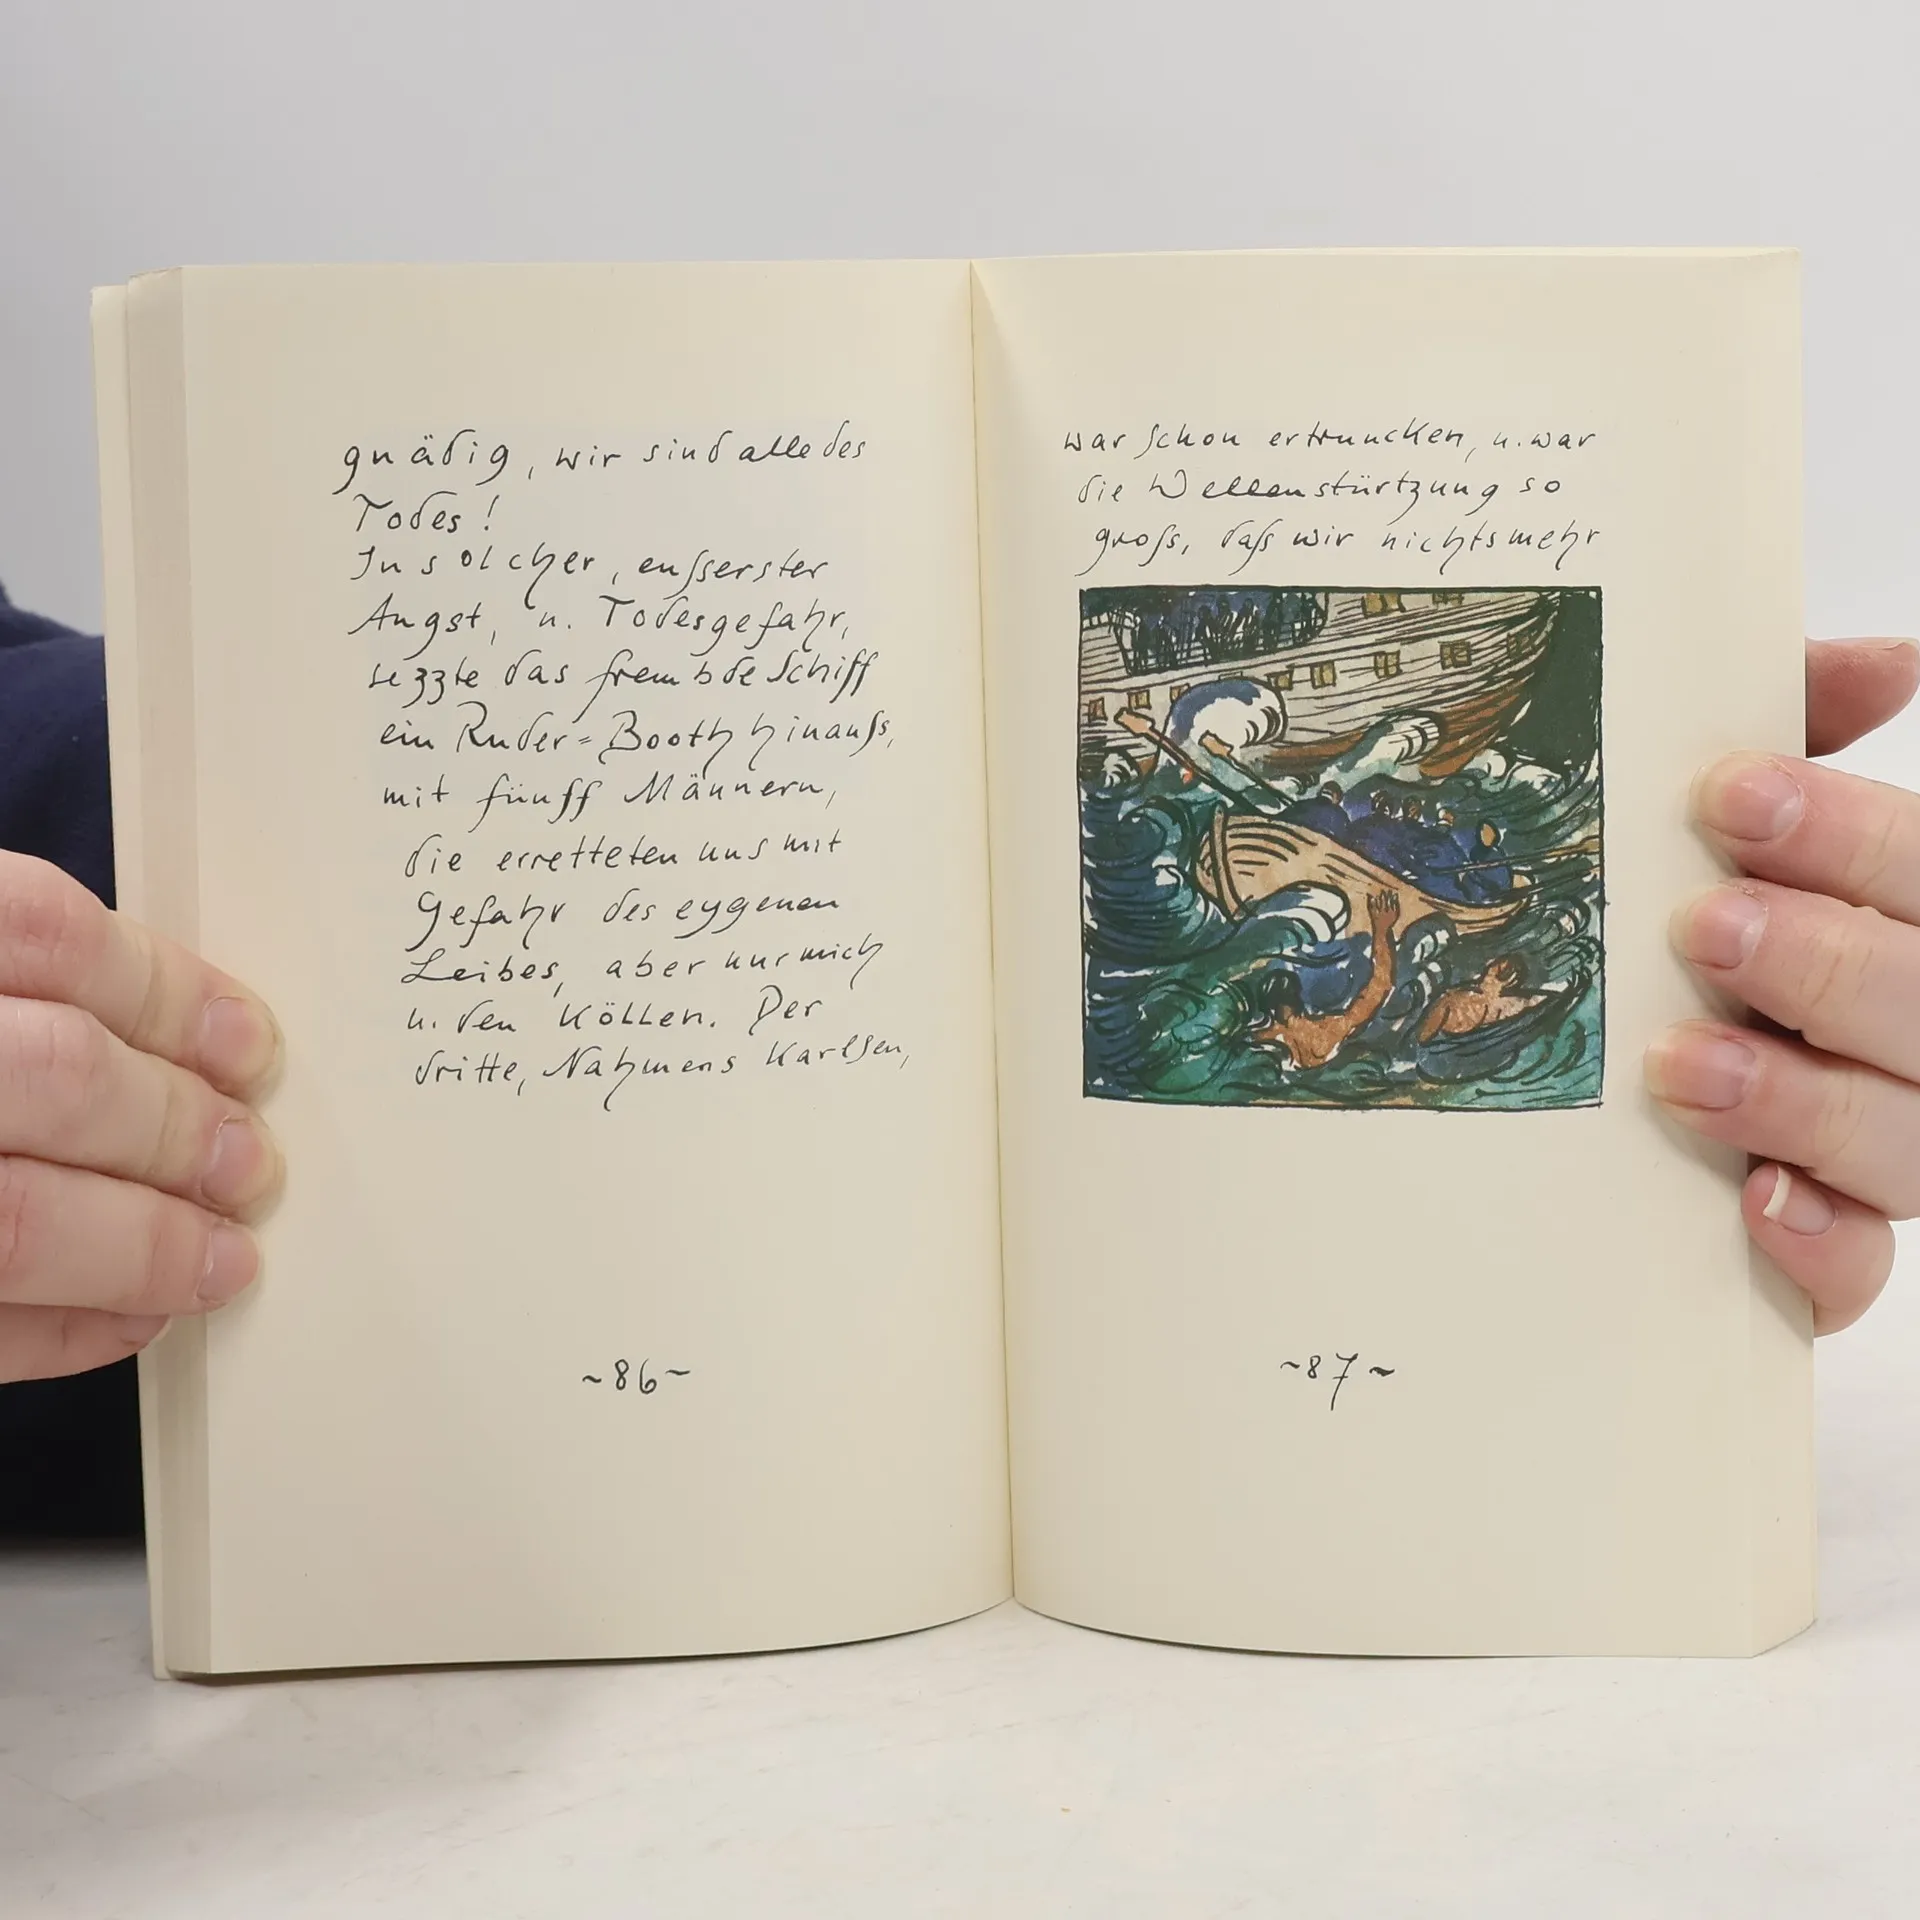 gnädig, wir sind alle des
Todes!
In solcher, eusserster
Angst, u. Todesgefahr,
sezzte das frembde Schiff
ein Ruder=Booth hinauss,
mit fünff Männern,
die erretteten uns mit
Gefahr des eygenen
Leibes, aber nur mich
u. den Köllen. Der
dritte, Nahmens Karlsen,
~86~
war schon ertruncken, u. war
die Wellenstürtzung so
gross, dass wir nichts mehr
~87~